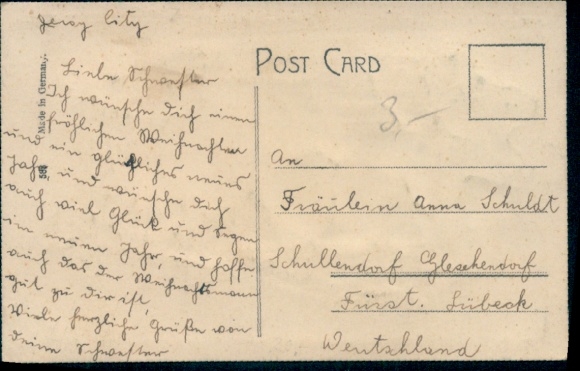 Jersy City
Liebe Schwester
Ich wünsche Dich einen
fröhlichen Weihnachten
und ein glückliches neues
Jahr und wünsche dich
auch viel Glück und Segen
im neuen Jahr, und hoffe
auch das der Weihnachtsmann
gut zu dir ist,
Viele herzliche Grüße von
deine Schwester
586 Made in Germany.
POST CARD
3,-
An
Fräulein Anna Schuldt
Schullendorf Gleschendorf
Fürst. Lübeck
Deutschland